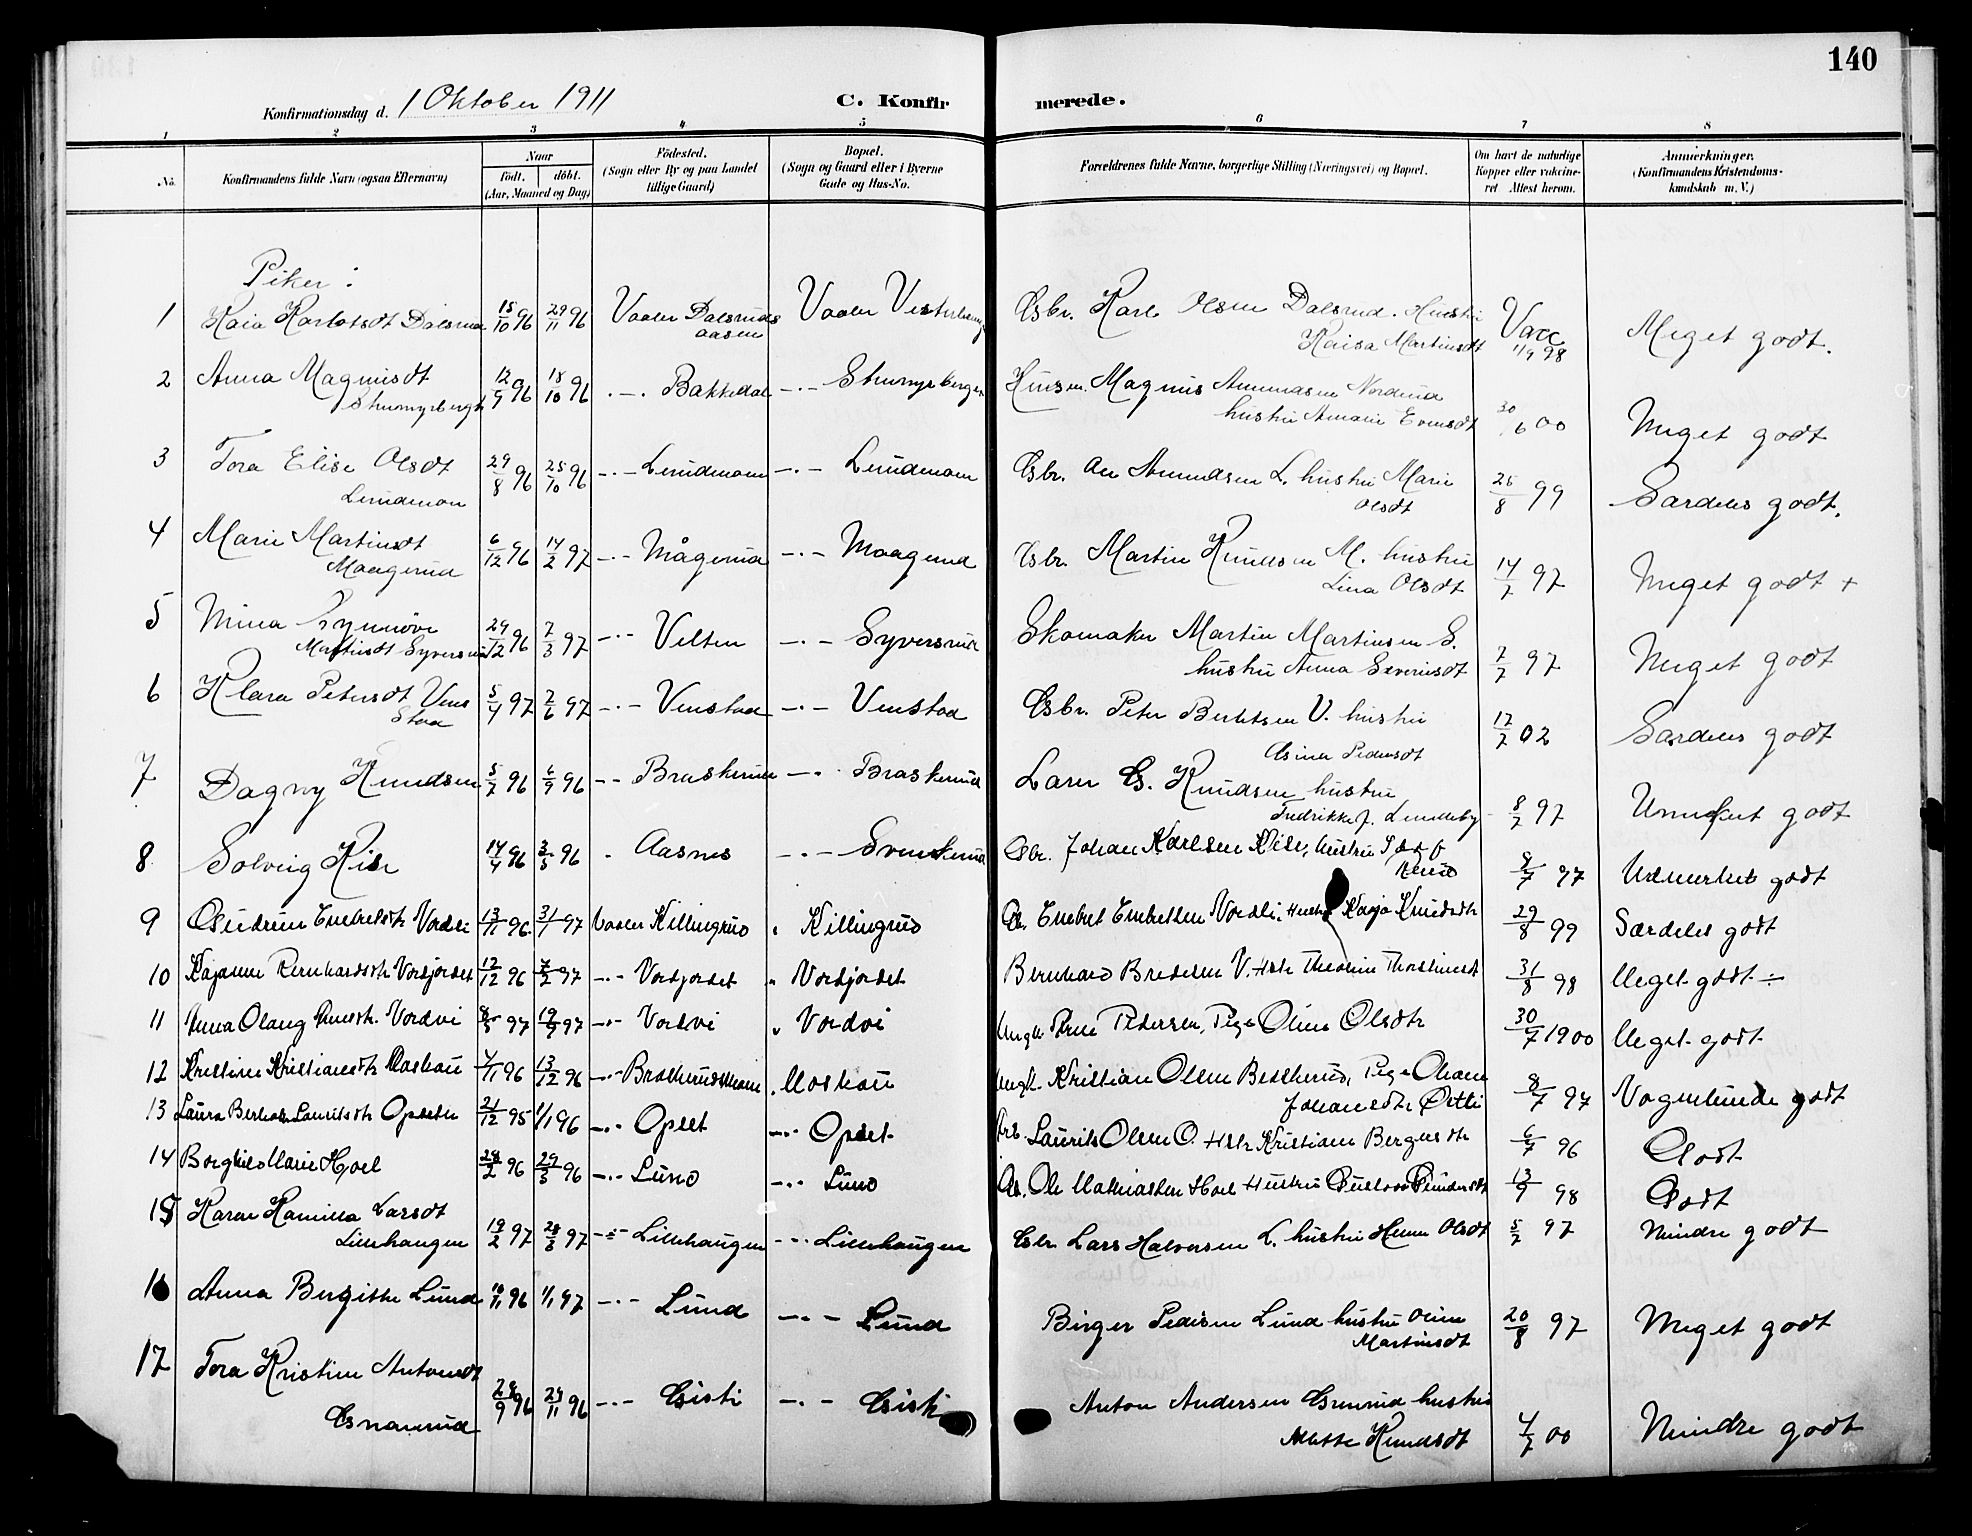 140
Konfirmationsdag d. 1 Oktober 1911 C. Konfirmerede.
1 2 3 4 5 6 7 8
No. Konfirmandens fulde Navn (ogsaa Efternavn) Naar født. døbt. (Aar, Maaned og Dag) Fødested. (Sogn eller By og paa Landet tillige Gaard) Bopæl. (Sogn og Gaard eller i Byerne Gade og Hus-No.) Forældrenes fulde Navne, borgerlige Stilling (Næringsvei) og Bopæl. Om havt de naturlige Kopper eller vaccineret Attest herom. Anmærkninger. (Konfirmandens Kristendomskundskab m. V.)
Piker:
1 Kaia Karlsdt Dalsrud 15/10 96 29/11 96 Vaaler Dalsruds aasen Vaaler Gbr. Karl Olsen Dalsrud. Hustru
Kaisa Martinsdt Vacc 11/9 98 Meget godt.
2 Anna Magnusdt 12/9 96 18/10 96 -"- Bakkedal -"- Husm. Magnus Amundsen Nordrud
hustru 30/6 00 Meget godt
3 Tora Elise Olsdt 29/8 96 25/10 96 -"- Lerudmoen -"- Lerudmoen Gbr. Amundsen L. hustru Marie
Lerudmoen Olsdt 25/8 99 Særdeles godt.
4 Marie Martinsdt 6/12 96 14/2 97 -"- Mågerud -"- Maagerud Gbr. Martin Knudsen M. hustru
Maagerud Lina Olsdt 14/7 97 Meget godt +
5 Mina Synnøve 29/12 96 7/3 97 -"- Velten -"- Syversrud Skomaker Martin Martinsen S.
Martinsdt Syversrud hustru Anna Severinsdt 7/7 97 Meget godt
6 Klara Petersdt Venstad 5/4 97 7/6 97 -"- Venstad -"- Venstad Gbr. Peter Berntsen V. hustru
Pedersdt 17/7 02 Særdeles godt
7 Dagny Knudsen 5/7 96 6/9 96 -"- Braskerud -"- Braskerud Lærer G. Knudsen hustru
Fredrikke J. Lundeby 8/7 97 godt
8 Solveig Kise 14/4 96 3/5 96 Aasnes -"- Svenkerud Gbr. Johan Karlsen Kise, hustru
8/7 97 Udmerket godt
9 Gudrun Enebretsdtr Vordli 13/11 96 31/1 97 Vaaler Killingrud " Killingrud Enebret Enebretsen Vordli, Hustru Kaja Knudsdtr 29/8 99 Særdeles godt
10 Kajanne Bernhardsdtr Vordjordet 12/12 96 7/2 97 -"- Vordjordet " Vordjordet Bernhard Bredesen V. Hstr Theoline 31/8 98 Meget godt ÷
11 Anna Olaug Arnesdt. Vordvi 8/5 97 19/9 97 -"- Vordvi " Vordvi Ungk. Arne Pedersen, Pige Oline Olsdtr 30/7 1900 Meget godt
12 Kristine Kristiansdtr Moskau 4/11 96 13/12 96 -"- " Moskau Ungk. Kristian Olsen Braskerud, Pige
Johansdtr 8/7 97 Nogenlunde godt
13 Lauritsdtr Opsetn 21/12 95 1/1 96 -"- Opset -"- Opset Arb. Laurits Olsen O. Hstr Kristiane 6/7 96 Godt
14 Borghild Marie Hoel 28/2 96 29/3 96 -"- Lund -"- Lund Ole Mathiassen Hoel Hustru 13/9 98 Godt
15 Karen Kamilla Larsdt
Lillehaugen 19/2 97 28/3 97 -"- Lillehaugen -"- Lillehaugen Gbr Lars Halvorsen L. hustru Olsdt 5/7 97 Mindre godt
16 Anna Bergitte Lund 10/11 96 1/1 97 -"- Lund -"- Lund Birger Pedersen Lund hustru Oline
Martinsdt 20/8 97 Meget godt
17 Tora Kristine Antonsdt
28/9 96 29/11 96 -"- Gisti -"- Gisti Anton Andersen hustru
Knudsdt 4/7 00 Mindre godt